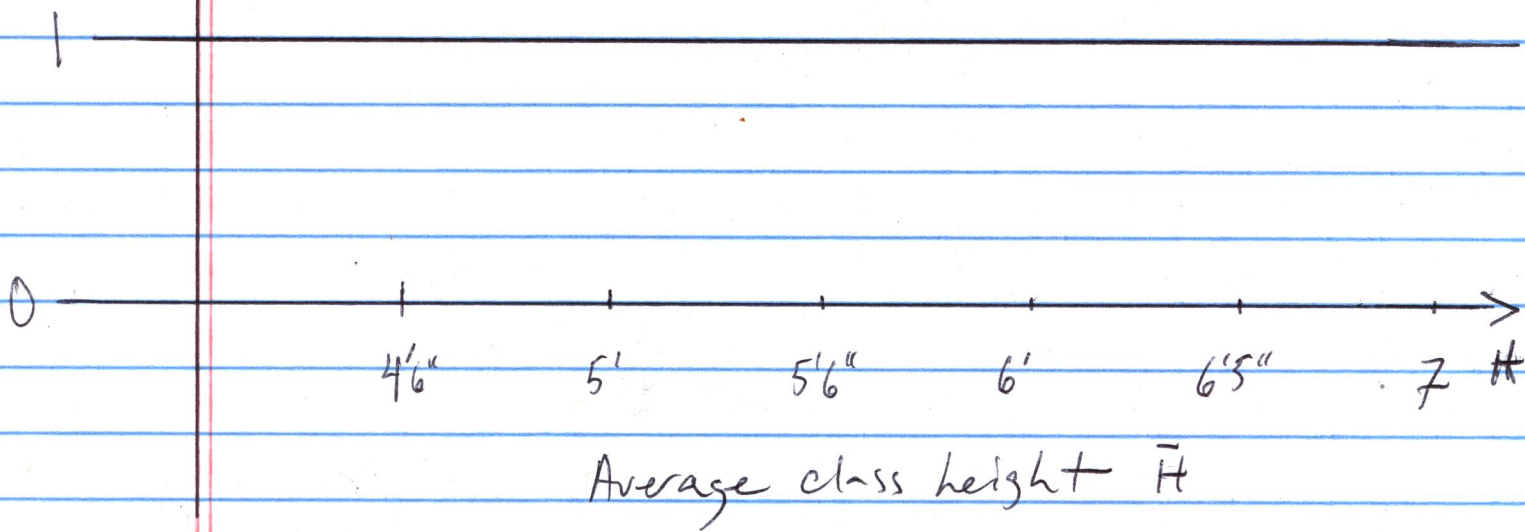 1
0
4'6" 5' 5'6" 6' 6'5" 7 H
Average class height H̄